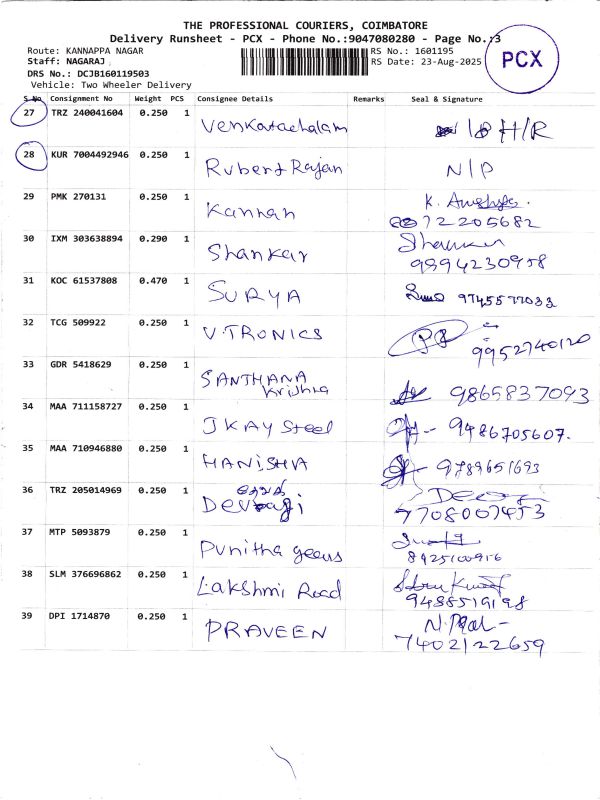 THE PROFESSIONAL COURIERS, COIMBATORE
Delivery Runsheet - PCX - Phone No.:9047080280 - Page No.:3
Route: KANNAPPA NAGAR
RS No.: 1601195
Staff: NAGARAJ
RS Date: 23-Aug-2025
PCX
DRS No.: DCJB160119503
Vehicle: Two Wheeler Delivery
S.No Consignment No Weight PCS Consignee Details Remarks Seal & Signature
27 TRZ 240041604 0.250 1 Venkatachalam 18 H/R
28 KUR 7004492946 0.250 1 Rubert Rajan N/P
29 PMK 270131 0.250 1 Kannan K.
72205682
30 IXM 303638894 0.290 1 Shankar
9994230958
31 KOC 61537808 0.470 1 SURYA 9745577033
32 TCG 509922 0.250 1 V.TRONICS 9952740120
33 GDR 5418629 0.250 1 SANTHANA
Krishna 9865837093
34 MAA 711158727 0.250 1 JKAY Steel 9486705607.
35 MAA 710946880 0.250 1 MANISHA 9789651693
36 TRZ 205014969 0.250 1 Devragi
7708007453
37 MTP 5093879 0.250 1 Punitha geens
8925100916
38 SLM 376696862 0.250 1 Lakshmi Road
9488519198
39 DPI 1714870 0.250 1 PRAVEEN
7402122659